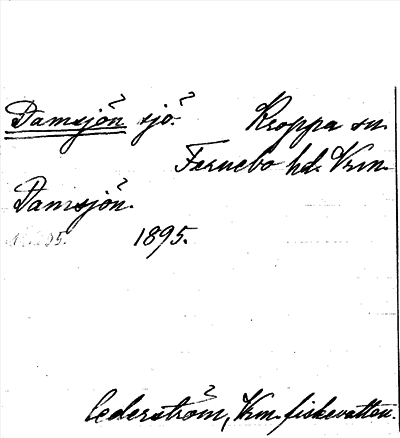 Damsjön sjö. Kroppa sn.
Fernebo hd. Vrm.
Damsjön.
1895.
Cederström, Vrm. fiskevatten.